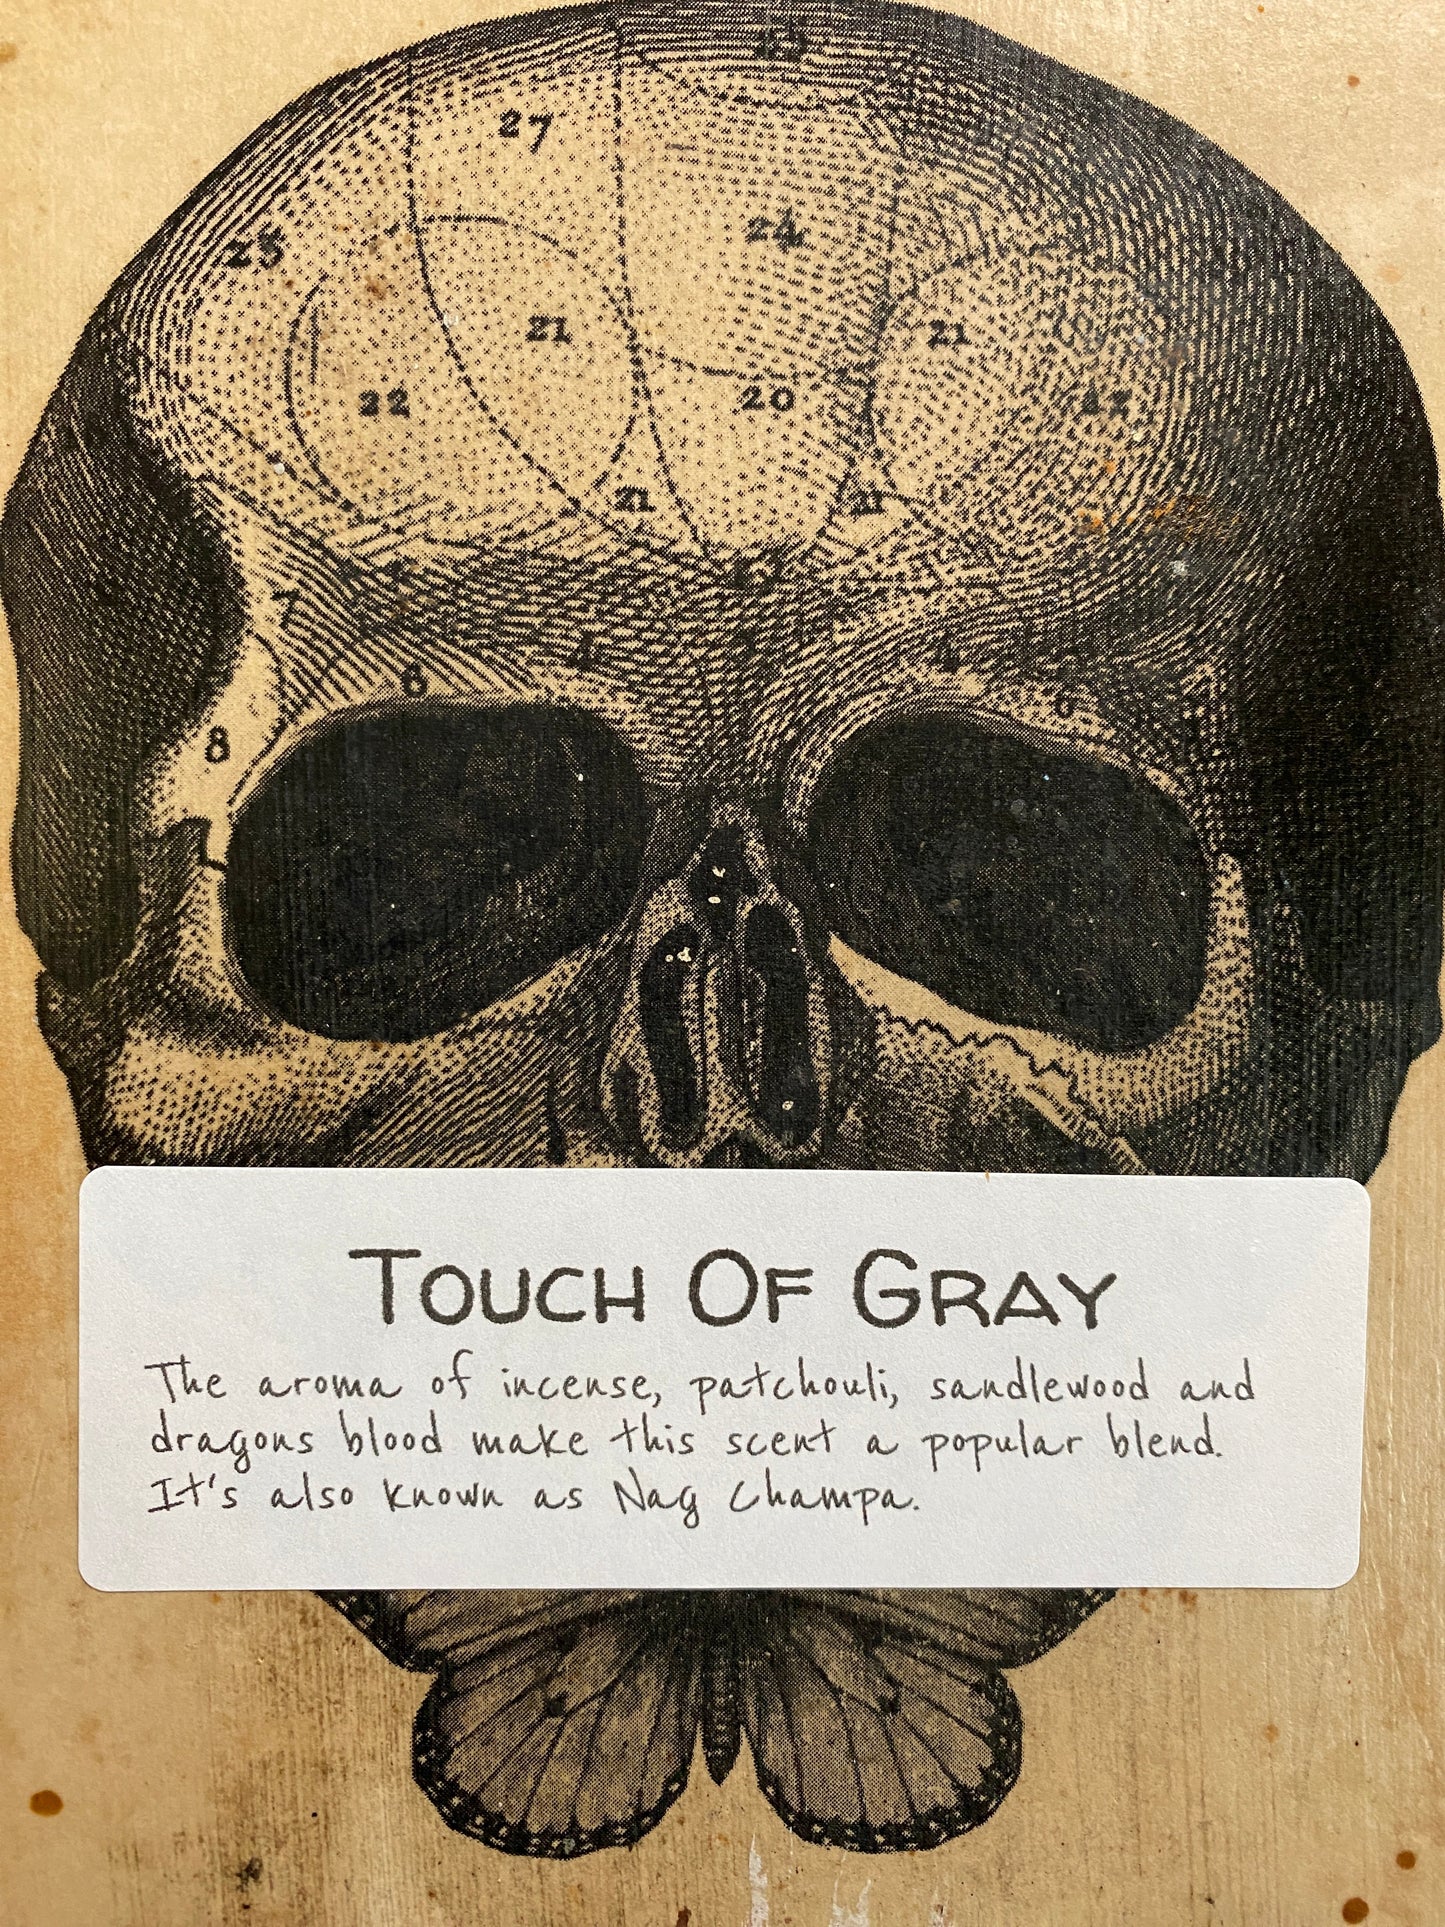 27
24
23
21
21
22
20
21
21
7
6
8
TOUCH OF GRAY
The aroma of incense, patchouli, sandlewood and
dragons blood make this scent a popular blend.
It's also known as Nag Champa.